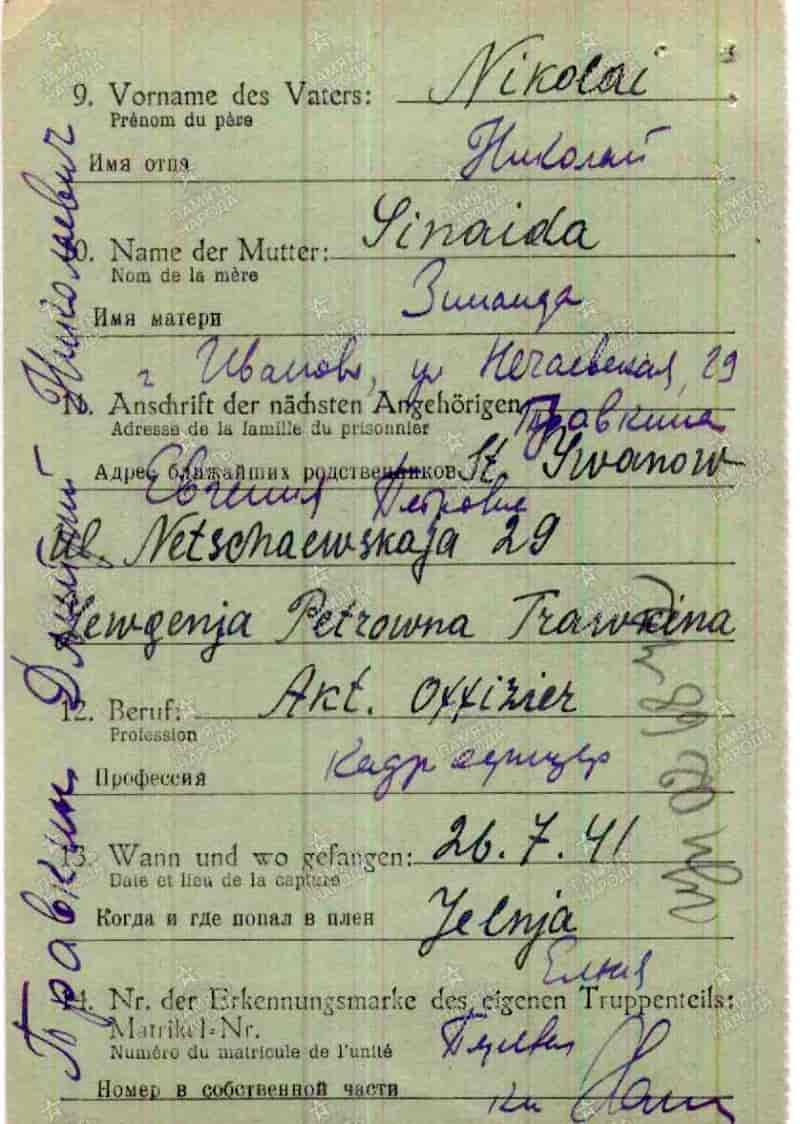 9. Vorname des Vaters: Nikolai
Prénom du père
Николай
Имя отца
10. Name der Mutter: Sinaida
Nom de la mère
Зинаида
Имя матери
г Иваново, ул Нечаевская, 29
11. Anschrift der nächsten Angehörigen
Adresse de la famille du prisonnier
Травкина
Адрес ближайших родственников St. Iwanow
Евгения Петровна
ul. Netschaewskaja 29
Jewgenja Petrowna Trawkina
12. Beruf: Akt. Offizier
Profession
Кадр офицер
Профессия
13. Wann und wo gefangen: 26.7.41
Date et lieu de la capture
Когда и где попал в плен Jelnja
Елня
14. Nr. der Erkennungsmarke des eigenen Truppenteils:
Matrikel-Nr.
Numéro du matricule de l'unité
Номер в собственной части
Травкин Дмитрий Николаевич
ПАМЯТЬ НАРОДА